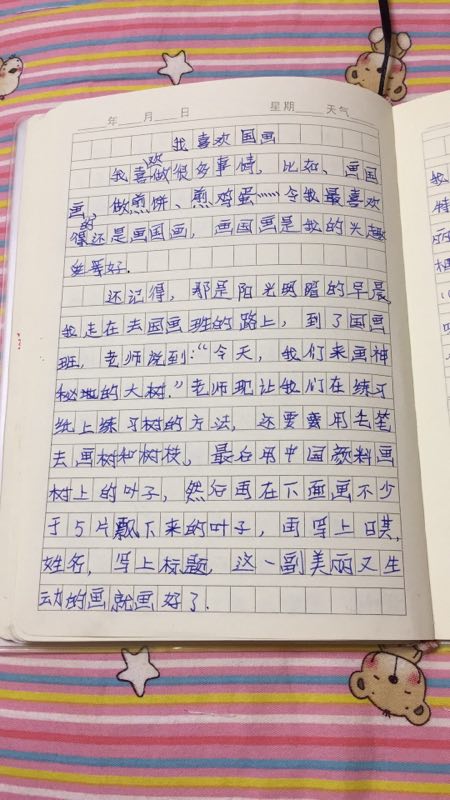 年 月 日 星期 天气
我喜欢国画
我喜欢做很多事情，比如、画国
画、做煎饼、煎鸡蛋……令我最喜欢
的还是画国画，画国画是我的兴趣
爱好．
还记得，那是阳光明媚的早晨，
我走在去国画班的路上，到了国画
班，老师说到：“今天，我们来画神
秘地的大树．”老师现让我们在练习
纸上练习树的方法，还要要用毛笔
去画树和树枝。最后用中国颜料画
树上的叶子，然后再在下面画不少
于5片飘下来的叶子，再写上日其，
姓名，写上标题，这一副美丽又生
动的画就画好了．